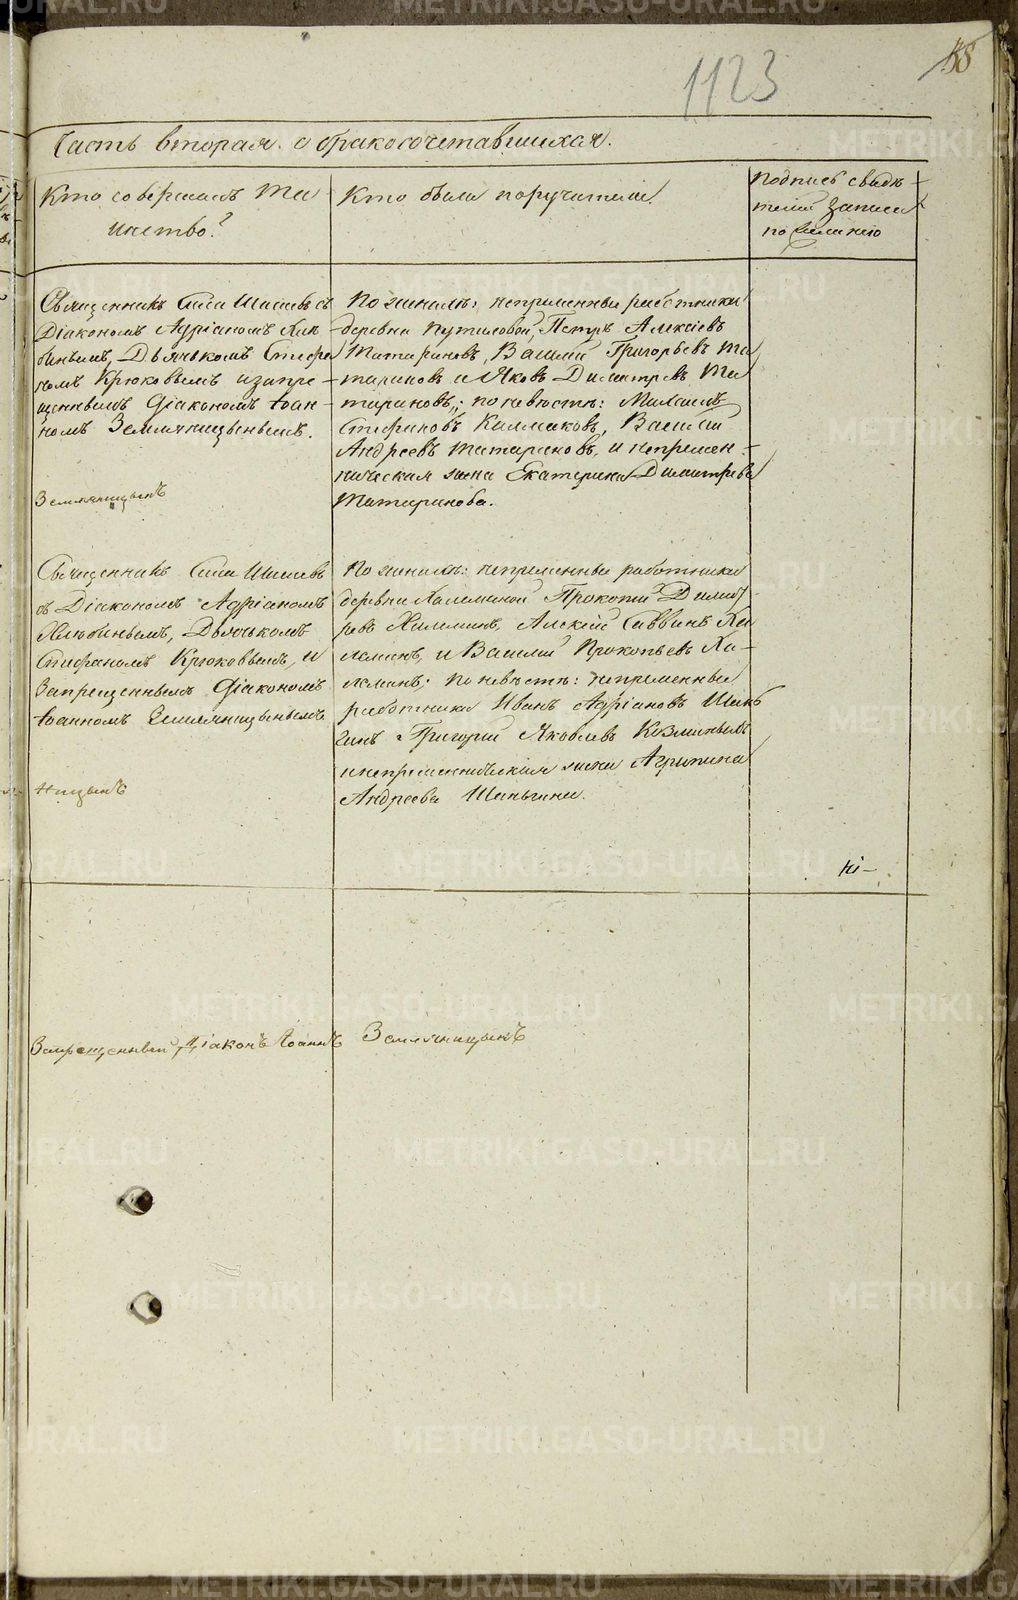 1123
58
Часть вторая о бракосочетавшихся.
Кто совершалъ Таи
инство?
Кто были поручители.
Подпись свидѣ-
телей записи
по желанію
Священникъ Сила Шишевъ съ
Діакономъ Адріаномъ Хлю
бинымъ, Дьячькомъ Стефа
номъ Крюковымъ и запре-
щеннымъ Діакономъ Іоан-
номъ Земляницынымъ.
Земляницынъ
По женихѣ: непременные работники
деревни Путиловой, Петръ Алексѣевъ
Татариновъ, Василий Григорьевъ Та
тариновъ и Яковъ Димитревъ Та
тариновъ; по невѣстѣ: Михаилъ
Стефановъ Калмаковъ, Василий
Андреевъ Татариновъ, и непремен-
ническая жена Екатерина Димитрева
Татаринова.
Священникъ Сила Шишевъ
съ Діакономъ Адріаномъ
Хлюбинымъ, Дьячькомъ
Стефаномъ Крюковымъ, и
Запрещеннымъ Діакономъ
Іоанномъ Земляницынымъ
ницынъ
По женихѣ: непременные работники
деревни Халеминой Прокопий Димит-
ревъ Халеминъ, Алексѣй Саввинъ Ха
леминъ, и Василий Прокопьевъ Ха-
леминъ; по невѣстѣ: непременные
работники Иванъ Адріановъ Шань
гинъ Григорий Яковлевъ Козминыхъ
и непременническая жена Агрипина
Андреева Шаньгина.
Запрещенный Діаконъ Іоаннъ Земляницынъ
METRIKI.GASO-URAL.RU